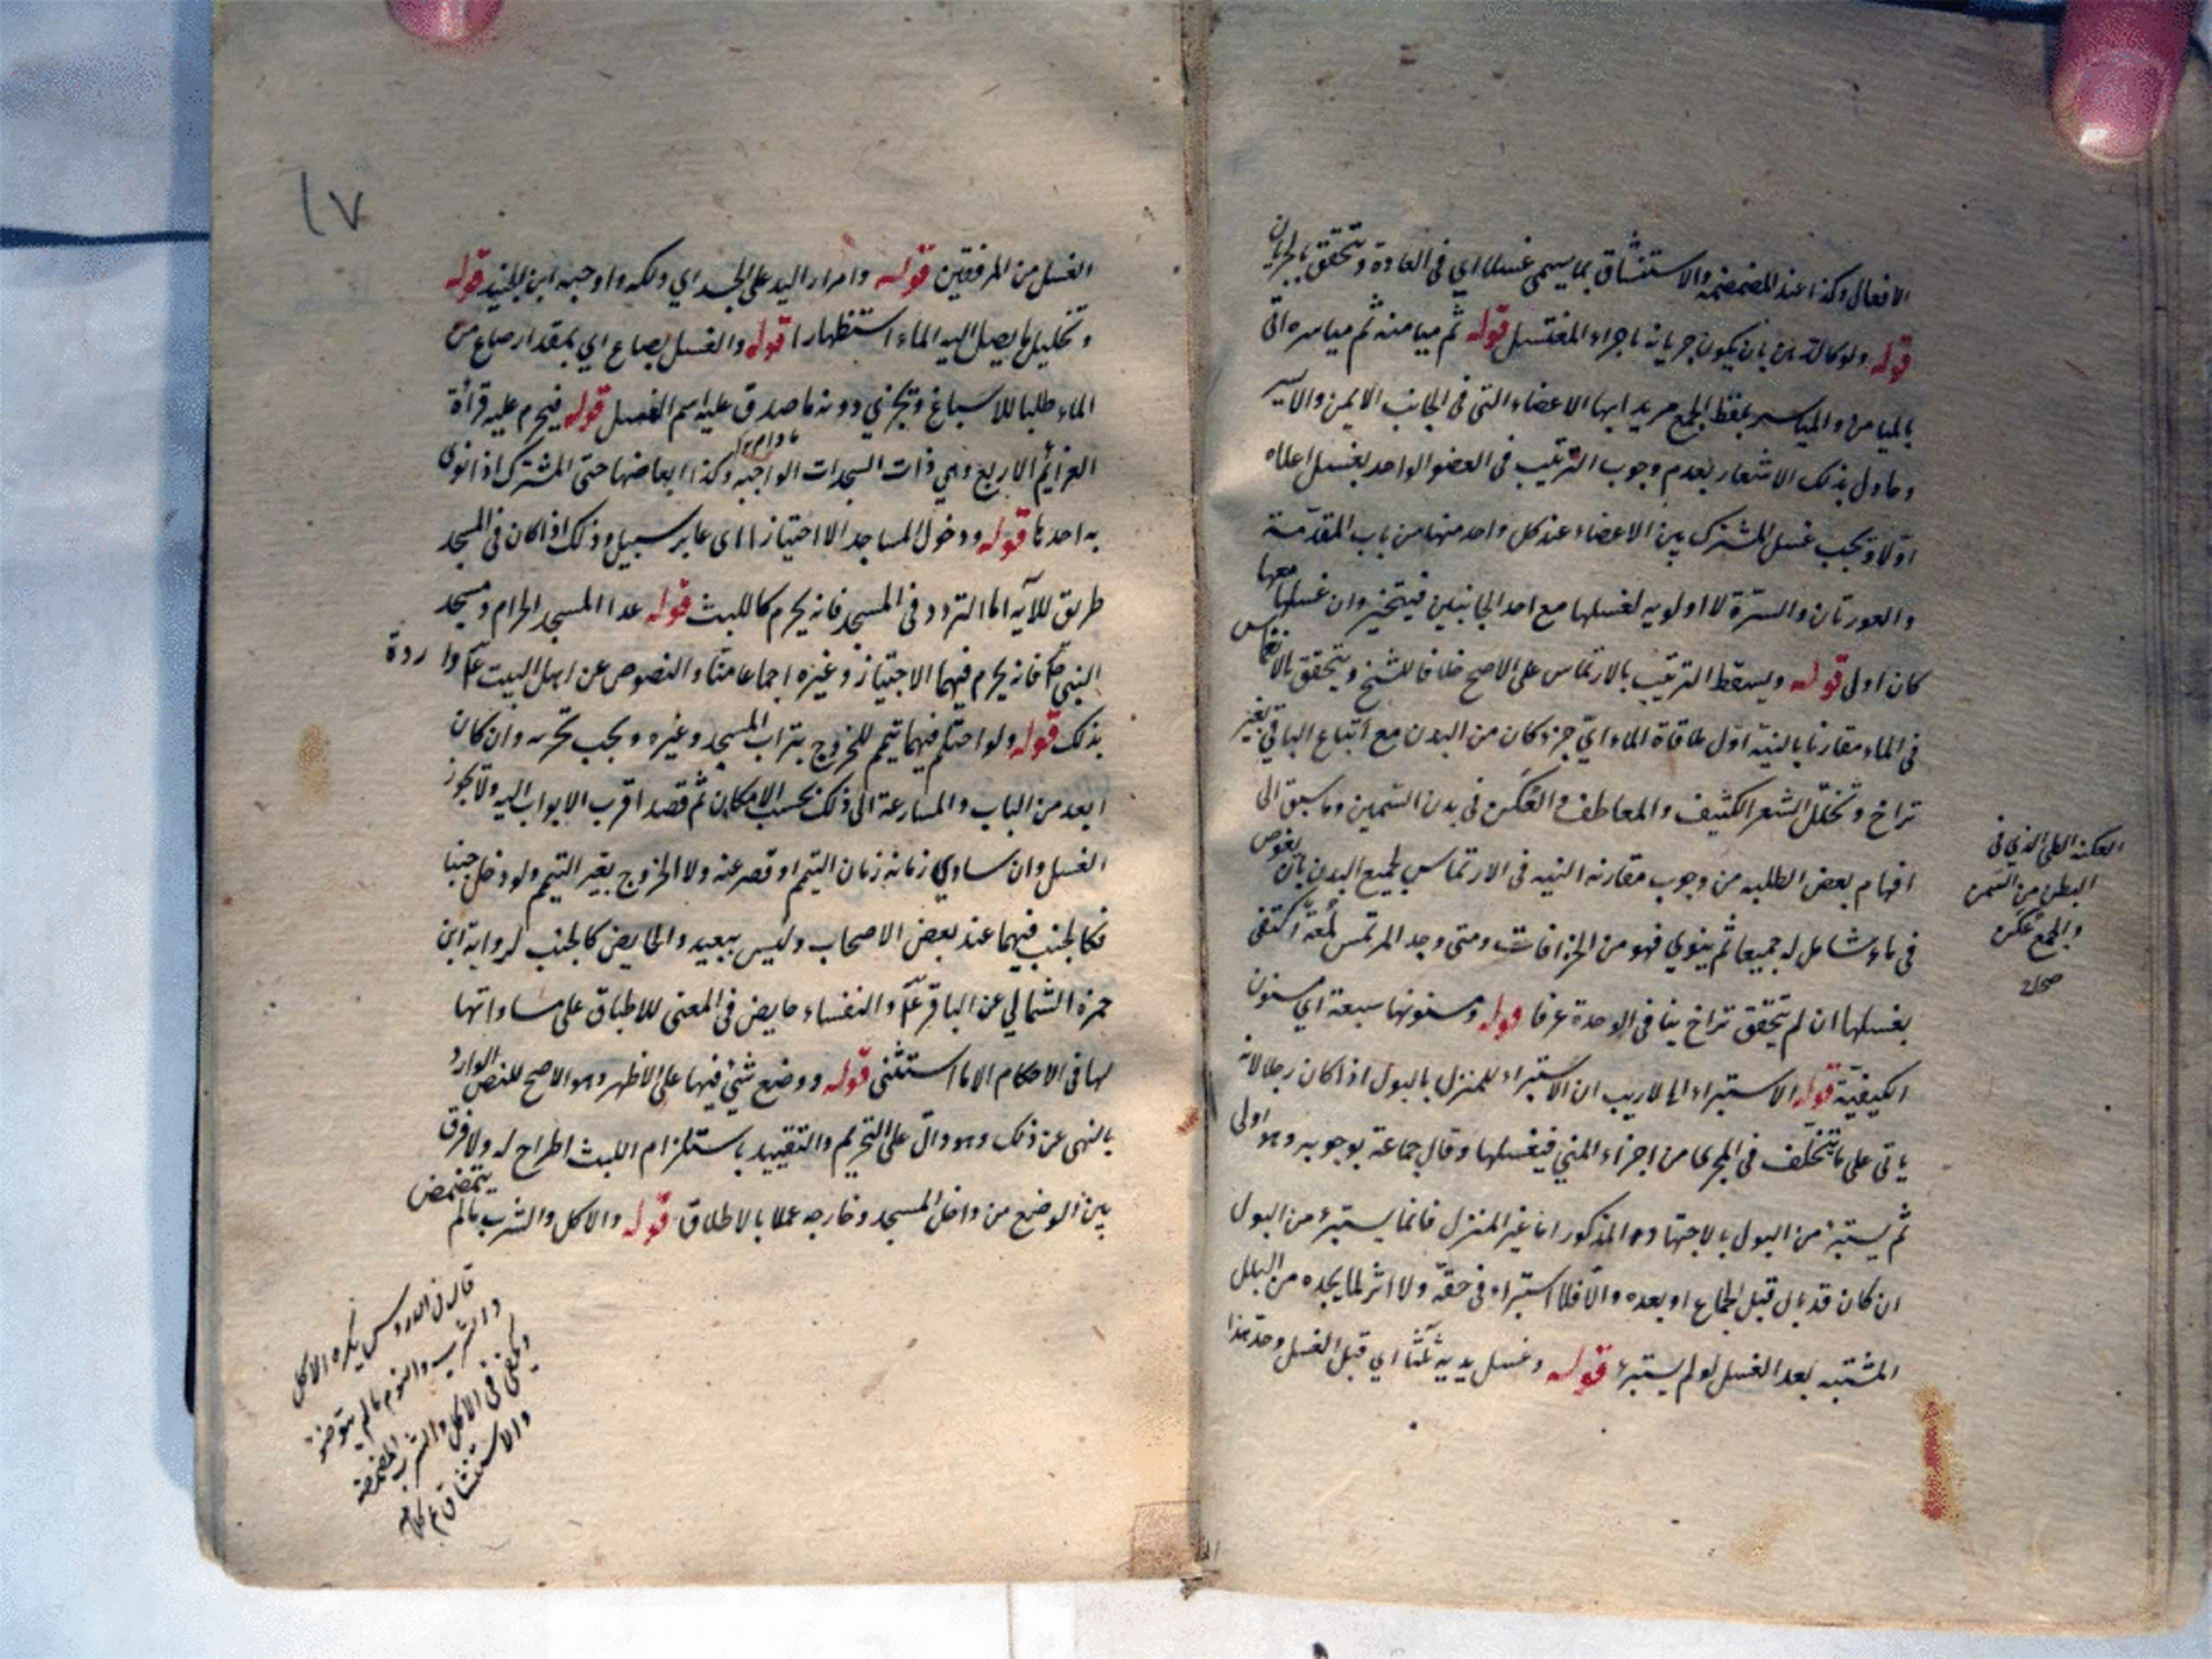 الافعال وكذا عند المضمضة والاستنشاق بما يسمى غسلا اي في العادة ويتحقق بالجريان
قوله ولو كالدهن بان يكون جريانه باجراء المغتسل قوله ثم ميامنه ثم مياسره اتى
بالميامن والمياسر بلفظ الجمع مريدا بها الاعضاء التي في الجانب الايمن والايسر
وحاول بذلك الاشعار بعدم وجوب الترتيب في العضو الواحد بغسل اعلاه
اولا ويجب غسل المشترك بين الاعضاء عند كل واحد منها من باب المقدمة
والعورتان والسرة لا اولويه لغسلها مع احد الجانبين فيتخير وان غسلها معهما
كان اولى قوله ويسقط الترتيب بالارتماس على الاصح خلافا للشيخ ويتحقق بالانغماس
في الماء مقارنا بالنيه اول ملاقاة الماء اي جزء كان من البدن مع اتباع الباقي بغير
تراخ وتخلل الشعر الكثيف والمعاطف والعكن في بدن السمين وما سبق الى
افهام بعض الطلبه من وجوب مقارنه النيه في الارتماس لجميع البدن بان يغوص
في ماء شامل له جميعا ثم ينوي فهو من الخرافات ومتى وجد المرتمس لمعة اكتفى
بغسلها ان لم يتحقق تراخ ينافي الوحدة عرفا قوله ومسنونها سبعة اي مسنون
الكيفية قوله الاستبراء لا ريب ان الاستبراء للمنزل بالبول اذا كان رجلا لانه
ياتي على ما يتخلف في المجرى من اجزاء المني فيغسلها وقال جماعة بوجوبه وهو اولى
ثم يستبرء من البول بالاجتهاد المذكور اما غير المنزل فانما يستبرء من البول
ان كان قد بال قبل الجماع او بعده والا فلا استبراء في حقه ولا اثر لما يجده من البلل
المشتبه بعد الغسل لو لم يستبرء قوله وغسل يديه ثلثا اي قبل الغسل وحد هذا
العكنه الطي الذي في
البطن من السمن
والجمع عكن
صحاح
١٧
الغسل من المرفقين قوله وامرار اليد على الجسد اي دلكه واوجبه ابن الجنيد قوله
وتخليل ما يصل اليه الماء استظهارا قوله والغسل بصاع اي بمقدار صاع من
الماء طلبا للاسباغ ويجزي دونه ما صدق عليه اسم الغسل قوله فيحرم عليه قراءة
العزايم الاربع وهي ذات السجدات الواجبه وكذا ابعاضها حتى المشترك اذا نوى
به احدها قوله ودخول المساجد الا اجتيازا اي عابر سبيل وذلك اذا كان في المسجد
طريق للآيه اما التردد في المسجد فانه يحرم كاللبث قوله عدا المسجد الحرام ومسجد
النبي ص فانه يحرم فيهما الاجتياز وغيره اجماعا منا والنصوص عن اهل البيت ع واردة
بذلك قوله ولو احتلم فيهما تيمم للخروج بتراب المسجد وغيره ويجب تحريه وان كان
ابعد من الباب والمسارعة الى ذلك بحسب الامكان ثم قصد اقرب الابواب اليه ولا يجوز
الغسل وان ساوي زمانه زمان التيمم او قصر عنه ولا الخروج بغير التيمم ولو دخل جنبا
فكالجنب فيهما عند بعض الاصحاب وليس ببعيد والحايض كالجنب لرواية ابن
حمزة الثمالي عن الباقر ع والنفساء حايض في المعنى للاطباق على مساواتها
لها في الاحكام الا ما استثني قوله ووضع شئ فيها على الاظهر وهو الاصح للنص الوارد
بالنهي عن ذلك وهو دال على التحريم والتقييد باستلزام اللبث اطراح له ولا فرق
بين الوضع من داخل المسجد وخارجه عملا بالاطلاق قوله والاكل والشرب ما لم يتمضمض
قال في الدروس يكره الاكل
والشرب والنوم ما لم يتوضؤ
ويكفي في الاكل والشرب المضمضة
والاستنشاق